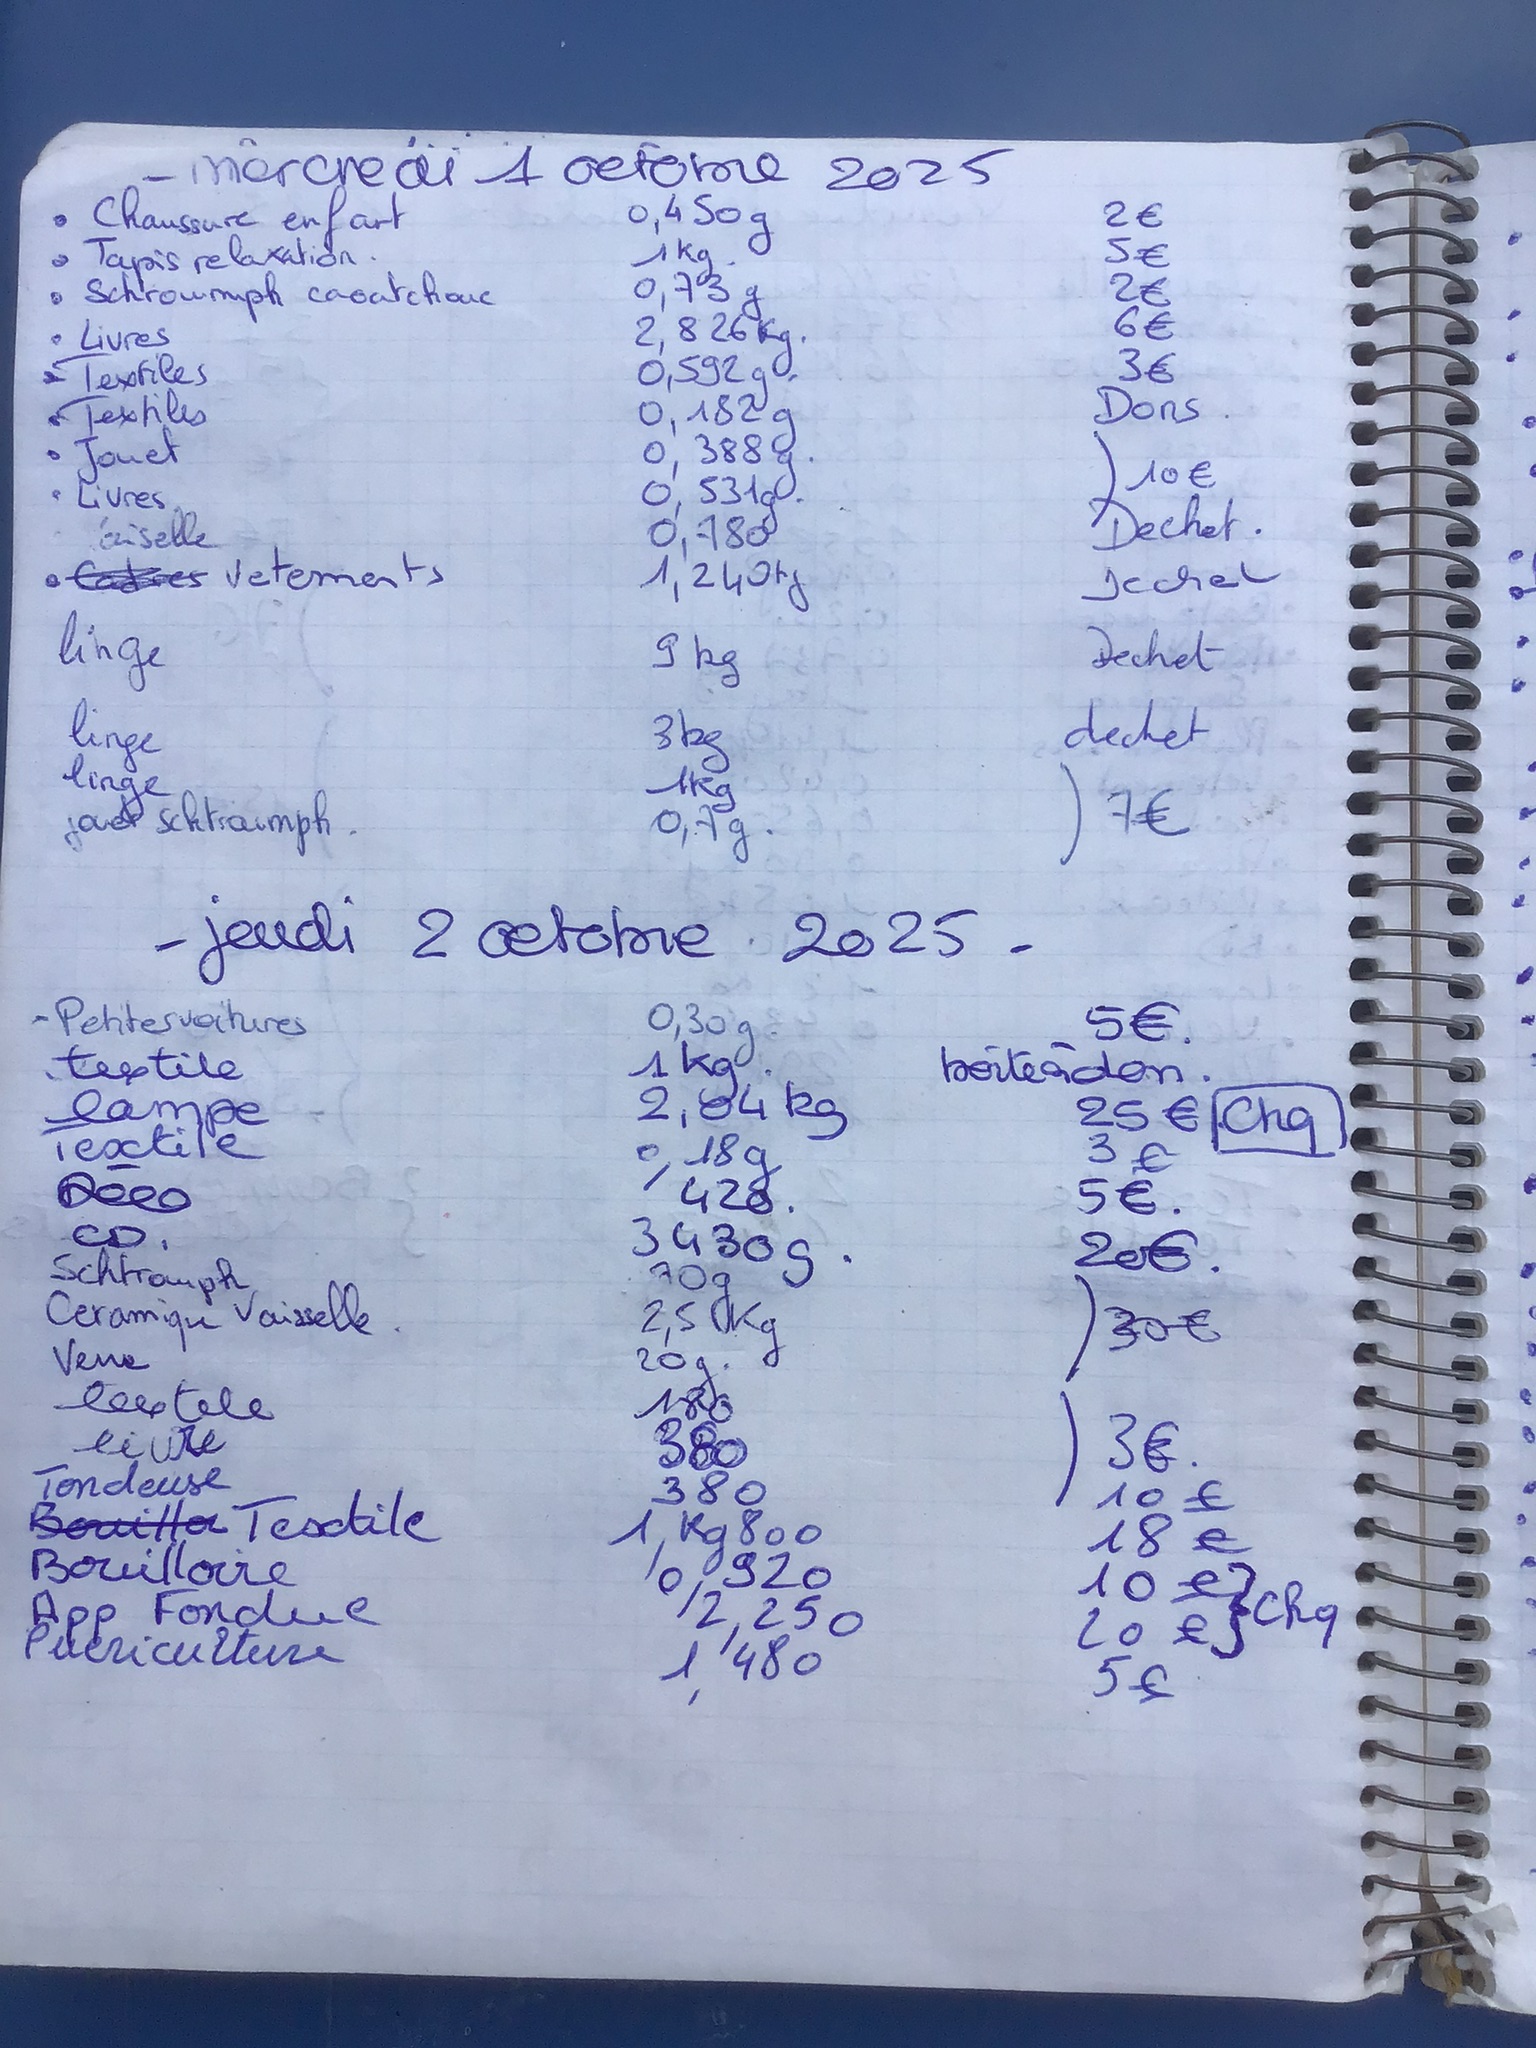 - mercredi 1 octobre 2025
• Chaussure enfant 0,450g 2€
• Tapis relaxation. 1kg. 5€
• Schroumph caoutchouc 0,73g 2€
• Livres 2,826kg. 6€
• Textiles 0,592g. 3€
• Textiles 0,182g Dons.
• Jouet 0,388g. ) 10€
• Livres 0,531g.
vaiselle 0,780 Dechet.
• vetements 1,240kg Dechet
linge 9 kg Dechet
linge 3kg dechet
linge 1kg ) 7€
jouet Schtroumph. 0,7g.
- jeudi 2 octobre 2025 -
- Petites voitures 0,30g. 5€.
textile 1 kg. boîte à don.
lampe 2,04 kg 25€ Chq
Textile 0,18g 3€
Déco 420. 5€.
CD. 3430g. 20€.
Schtroumph 70g ) 30€
Ceramique Vaisselle. 2,50kg
Verre 20g.
textile 180 ) 3€.
livre 380
Tondeuse 380 10 €
Bouilloi Textile 1,kg800 18 €
Bouilloire 0,920 10 € } Chq
App Fondue 2,250 20 € }
Puericulture 1,480 5€